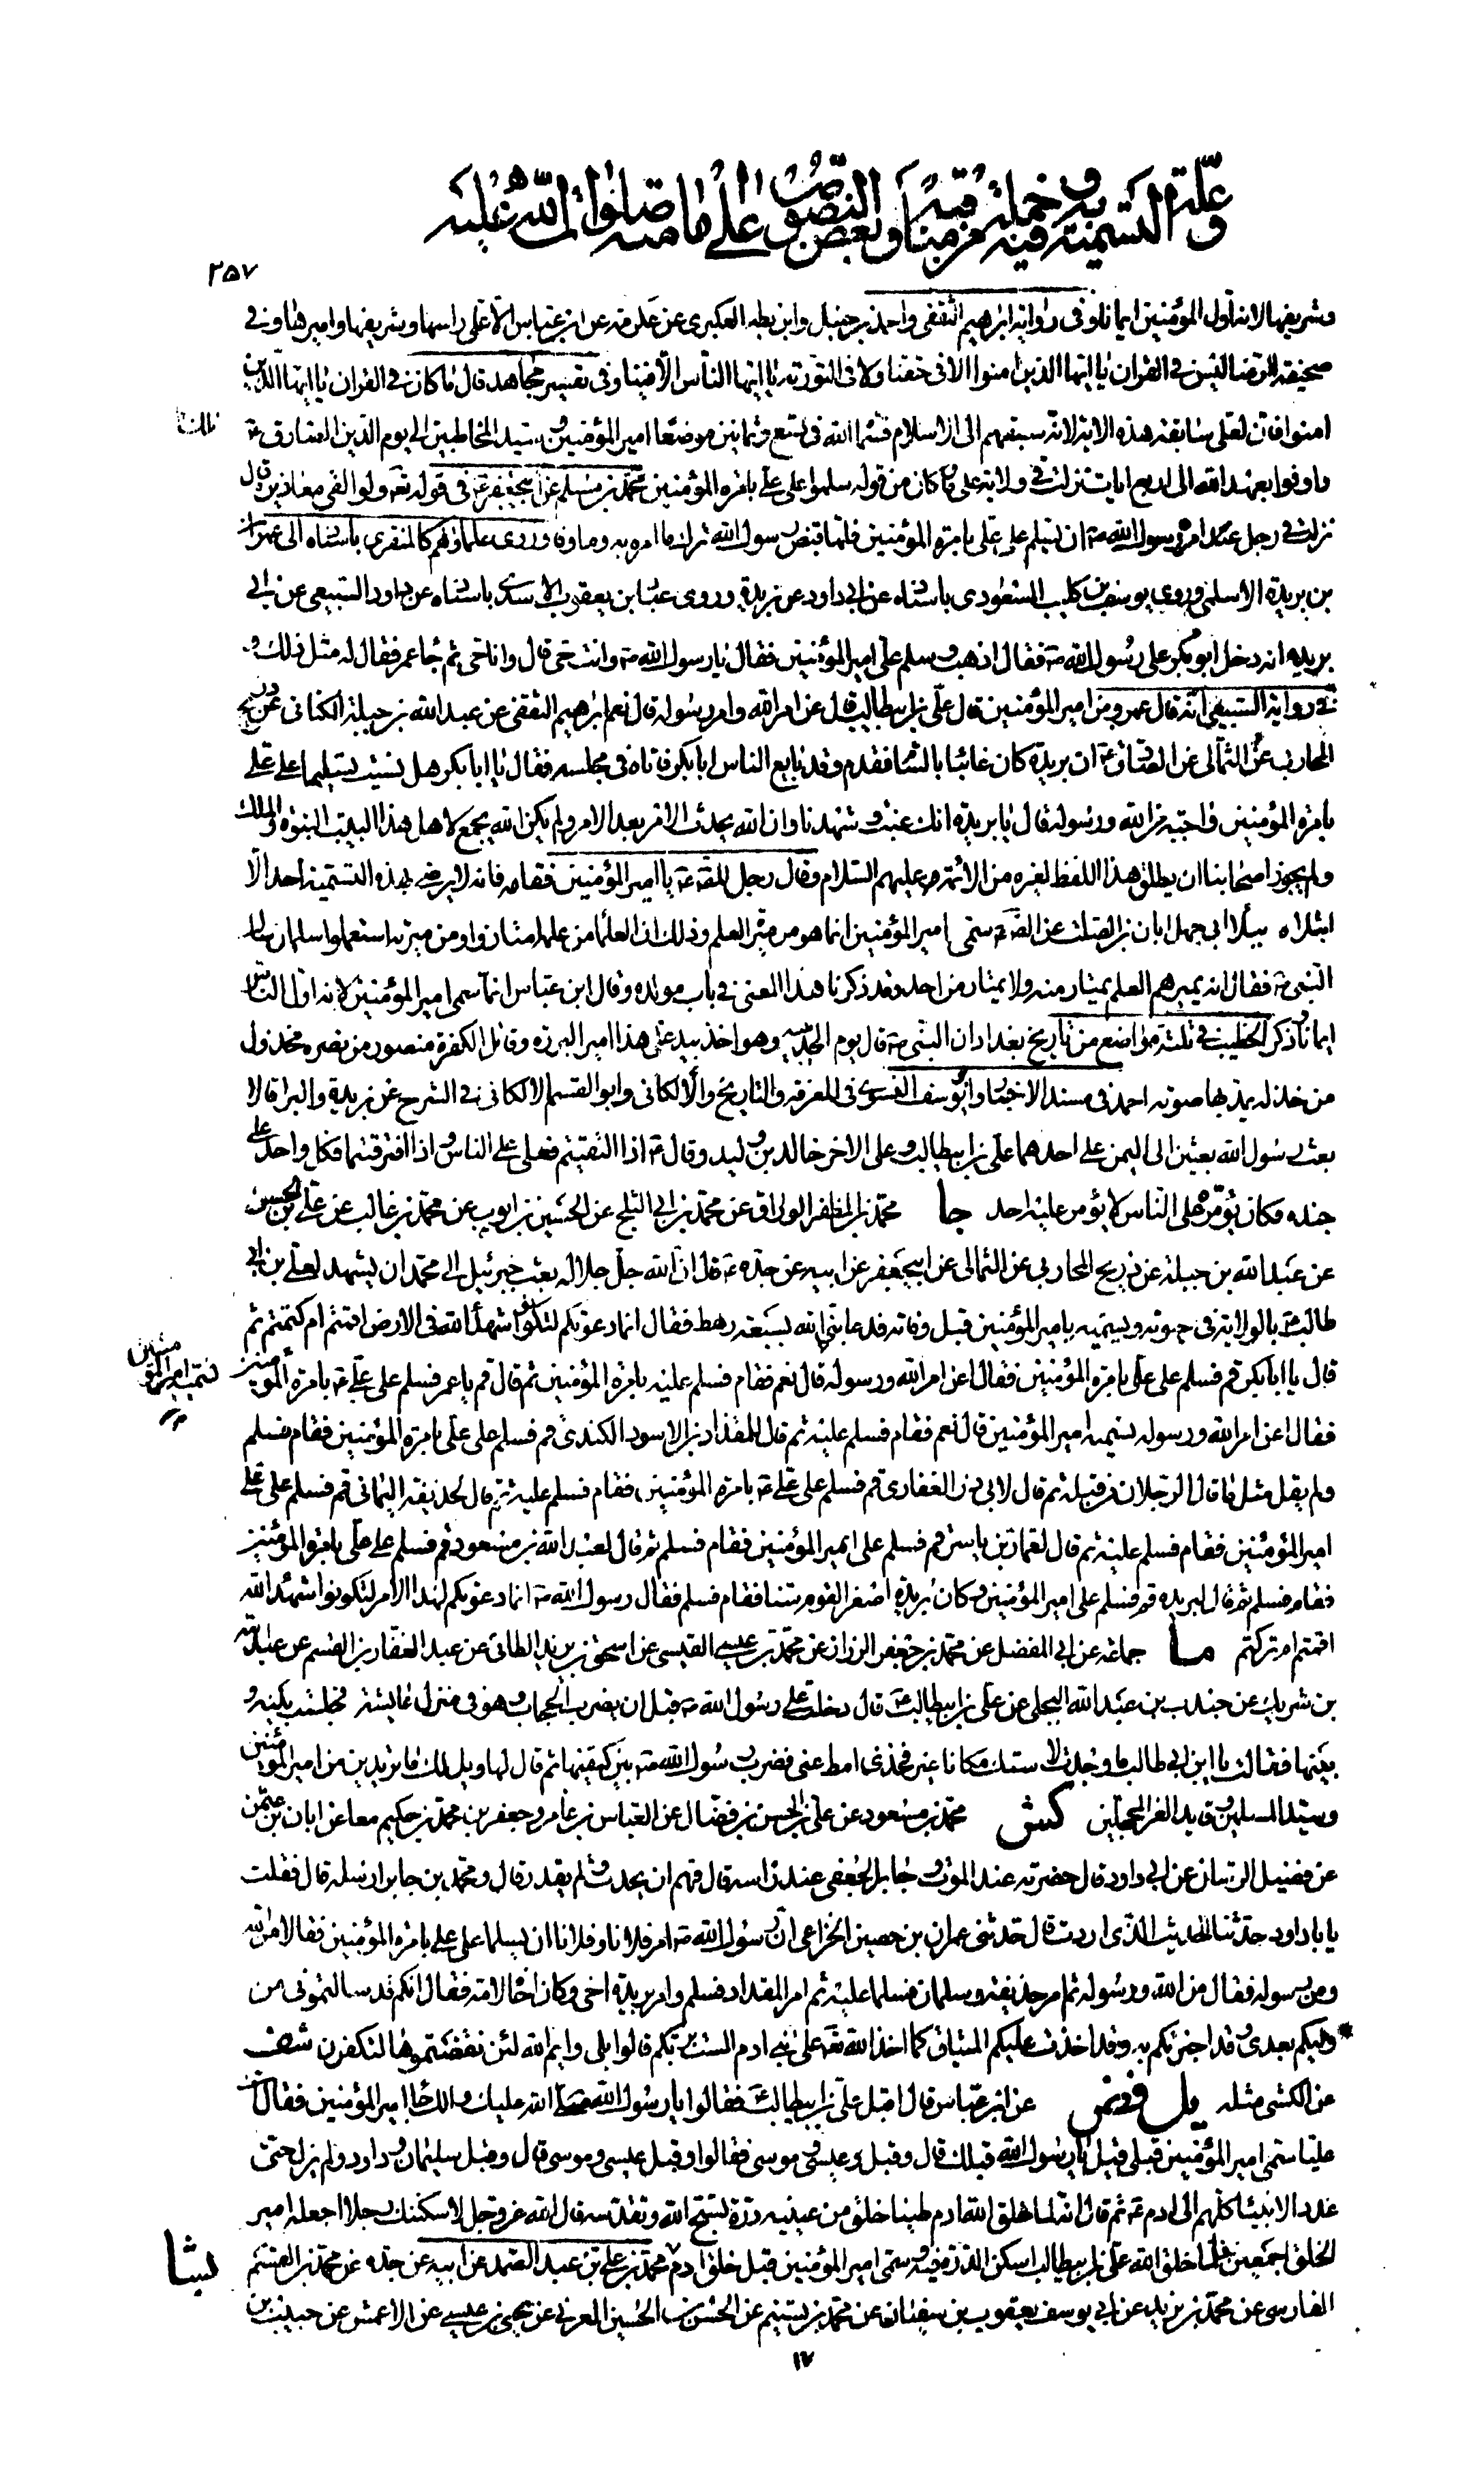 وعلة التسمية به وخملته فيه من مناو وبعض النصوص على امامته صلوات الله عليه
٢٥٧
وشريفها لانه اول المؤمنين ايمانا وفى رواية ابرهيم الثقفى واحمد بن حنبل وابن بطه العكبرى عن عكرمة عن ابن عباس الا على راسها وشريفها واميرها وفى
صحيفة الرضا ليس فى القران يا ايها الذين امنوا الا فى حقنا ولا فى التورية يا ايها الناس الا فينا وفى تفسير مجاهد قال ما كان فى القران يا ايها الذين
امنوا فان لعلى سابقة هذه الاية لانه سبقهم الى الاسلام فسماه الله فى تسع وثمانين موضعا امير المؤمنين وسيد المخاطبين الى يوم الدين الصادق ع
واوفوا بعهد الله الى اربع ايات نزلت فى ولاية على وما كان من قوله سلموا على على بامرة المؤمنين محمد بن مسلم عن ابى جعفر ع فى قوله تعالى
نزلت فى رجل امره رسول الله ص ان يسلم على على بامرة المؤمنين فلما قبض رسول الله ترك ما امره به وما وفا وروى علماؤهم كالمنقرى باسناده الى عمران
بن بريدة الاسلمى وروى يوسف بن كليب المسعودى باسناده عن ابى داود عن بريدة وروى عباد بن يعقوب الاسدى باسناده عن داود السبيعى عن ابى
بريدة انه دخل ابو بكر على رسول الله ص فقال اذهب وسلم على امير المؤمنين فقال يا رسول الله ص وانت حى قال وانا حى ثم جا عمر فقال له مثل ذلك و
فى رواية السبيعى انه قال عمر ومن امير المؤمنين قال على بن ابيطالب قال عن امر الله وامر رسوله قال نعم ابرهيم الثقفى عن عبد الله بن جبلة الكنانى عن ذريح
المحاربى عن الثمالى عن الصادق ع ان بريدة كان غائبا بالشام فقدم وقد بايع الناس ابا بكر فاتاه فى مجلسه فقال يا ابا بكر هل نسيت تسليمنا على على
بامرة المؤمنين واجبة من الله ورسوله قال يا بريدة انك غبت وشهدنا وان الله يحدث الامر بعد الامر ولم يكن الله يجمع لاهل هذا البيت النبوة والملك
ولم يجوز اصحابنا ان يطلق هذا اللفظ لغيره من الائمة عليهم السلام وقال رجل للصادق ع يا امير المؤمنين فقال مه فانه لا يرضى بهذه التسمية احد الا
ابتلاه ببلاء ابى جهل ابان بن الصلت عن الصادق ع سمى امير المؤمنين انما هو من ميرة العلم وذلك ان العلما من علمه امتاروا ومن ميرته استعملوا سلمان سال
النبى ص فقال انه يميرهم العلم يمتار منه ولا يمتار من احد وقد ذكرنا هذا المعنى فى باب مولده وقال ابن عباس انما سمى امير المؤمنين لانه اول الناس
ايمانا وذكر الخطيب فى ثلثة مواضع من تاريخ بغداد ان النبى ص قال يوم الحديبية وهو اخذ بيد على هذا امير البررة وقاتل الكفرة منصور من نصره مخذول
من خذله يمد بها صوته احمد فى مسند الانصار وابو يوسف النسوى فى المعرفة والتاريخ والالكانى وابو القسم الالكانى فى الشرح عن بريدة والبرا قالا
بعث رسول الله بعثين الى اليمن على احدهما على بن ابيطالب وعلى الاخر خالد بن وليد وقال ع اذا التقيتم فعلى على الناس واذا افترقتما فكل واحد على
جنده فكان يؤمره على الناس لا يؤمر عليه احد جا محمد بن المظفر الوراق عن محمد بن ابى الثلج عن الحسين بن ايوب عن محمد بن غالب عن على بن الحسن
عن عبد الله بن جبلة عن ذريح المحاربى عن الثمالى عن ابيجعفر عن ابيه عن جده ع قال ان الله جل جلاله بعث جبرئيل الى محمد ان يشهد لعلى بن ابى
طالب ع بالولاية فى حيوته ويسميه بامير المؤمنين قبل وفاته فدعا نبى الله بسبعة رهط فقال انما دعوتكم لتكونوا شهداء الله فى الارض اقمتم ام كتمتم ثم
قال يا ابا بكر قم فسلم على على بامرة المؤمنين فقال اعن امر الله ورسوله قال نعم فقام فسلم عليه بامرة المؤمنين ثم قال قم يا عمر فسلم على على ع بامرة المؤمنين
فقال اعن امر الله ورسوله نسميه امير المؤمنين قال نعم فقام فسلم عليه ثم قال للمقداد بن الاسود الكندى قم فسلم على على بامرة المؤمنين فقام فسلم
ولم يقل مثل ما قال الرجلان من قبله ثم قال لابى ذر الغفارى قم فسلم على على ع بامرة المؤمنين فقام فسلم عليه ثم قال لحذيفة اليمانى قم فسلم على على
امير المؤمنين فقام فسلم عليه ثم قال لعمار بن ياسر قم فسلم على امير المؤمنين فقام فسلم ثم قال لعبد الله بن مسعود قم فسلم على على بامرة المؤمنين
فقام فسلم ثم قال لبريدة قم فسلم على امير المؤمنين وكان بريدة اصغر القوم سنا فقام فسلم فقال رسول الله ص انما دعوتكم لهذا الامر لتكونوا شهداء الله
اقمتم ام تركتم ما جماعة عن ابى المفضل عن محمد بن جعفر الرزاز عن محمد بن عيسى القيسى عن اسحق بن يزيد الطائى عن عبد الغفار بن القسم عن عبد الله
بن شريك عن جندب بن عبد الله البجلى عن على بن ابيطالب ع قال دخلت على رسول الله ص قبل ان يضرب الحجاب وهو فى منزل عايشة فجلست بينه و
بينها فقالت يا ابن ابى طالب ما وجدت لاستك مكانا غير فخذى امط عنى فضرب رسول الله ص بين كتفيها ثم قال لها ويل لك ما تريدين من امير المؤمنين
وسيد المسلمين وقايد الغر المحجلين كش محمد بن مسعود عن على بن الحسن بن فضال عن العباس بن عامر وجعفر بن محمد بن حكيم معا عن ابان بن عثمن
عن فضيل الرسان عن ابى داود قال حضرته عند الموت وجابر الجعفى عند راسه قال فهم ان يحدث فلم يقدر قال ومحمد بن جابر ارسله قال فقلت
يا با داود حدثنا الحديث الذى اردت قال حدثنى عمران بن حصين الخزاعى ان رسول الله ص امر فلانا وفلانا ان يسلما على على بامرة المؤمنين فقالا من الله
ومن رسوله فقال من الله ورسوله ثم امر حذيفة وسلمان فسلما عليه ثم امر المقداد فسلم وامر بريدة اخى وكان اخاه لامه فقال انكم قد سالتمونى من
وليكم بعدى وقد اخبرتكم به وقد اخذت عليكم الميثاق كما اخذ الله تعالى على بنى ادم الست بربكم قالوا بلى وايم الله لئن نقضتموها لتكفرن شف
عن الكشى مثله يل فض عن ابن عباس قال اقبل على بن ابيطالب ع فقالوا يا رسول الله صلى الله عليك والك جا امير المؤمنين فقال ان
عليا سمى امير المؤمنين قبلى قيل يا رسول الله قبلك قال وقبل عيسى وموسى فقالوا وقبل عيسى وموسى قال وقبل سليمان وداود ولم يزل حتى
عدد الانبيا كلهم الى ادم ع ثم قال انه لما خلق الله ادم طينا خلق من عينيه درة تسبح الله وتقدسه قال الله عز وجل لاسكننك رجلا اجعله امير
الخلق اجمعين فلما خلق الله على بن ابيطالب اسكن الدرة فيه وسمى امير المؤمنين قبل خلق ادم محمد بن على بن عبد الصمد عن ابيه عن جده عن محمد بن القسم
الفارسى عن محمد بن يزيد عن ابى يوسف يعقوب بن سفيان عن محمد بن تسنيم عن الحسن بن الحسين العرنى عن يحيى بن عيسى عن الاعمش عن حبيب بن
بشا
١٧